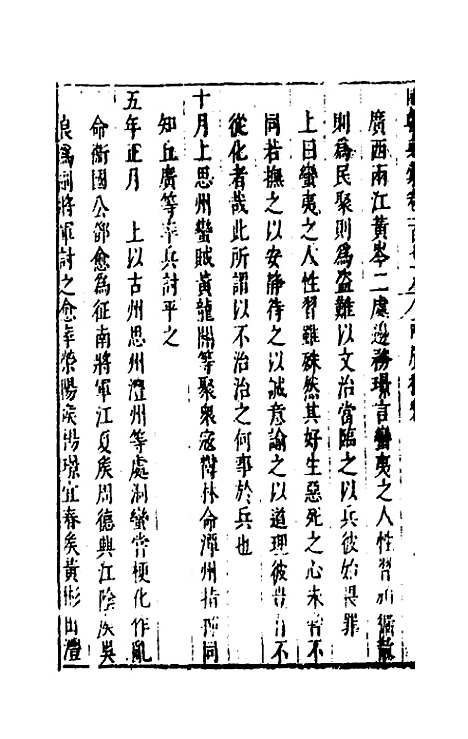 廣西兩江黃岑二處邊務璟言蠻夷之人性習
則為民聚則為盜難以文治當臨之以兵彼始畏罪
上曰蠻夷之人性習雖殊然其好生惡死之心未嘗不
同若撫之以安靜待之以誠意諭之以道理彼豈有不
從化者哉此所謂以不治治之何事於兵也
十月上思州蠻賊黃龍關等聚衆寇欝林命潭州指揮同
知丘廣等率兵討平之
五年正月 上以古州思州澧州等處洞蠻嘗梗化作亂
命衛國公鄧愈為征南將軍江夏矦周德興江陰矦吳
良為副將軍討之愈率滎陽矦楊璟宜春矦黃彬出澧